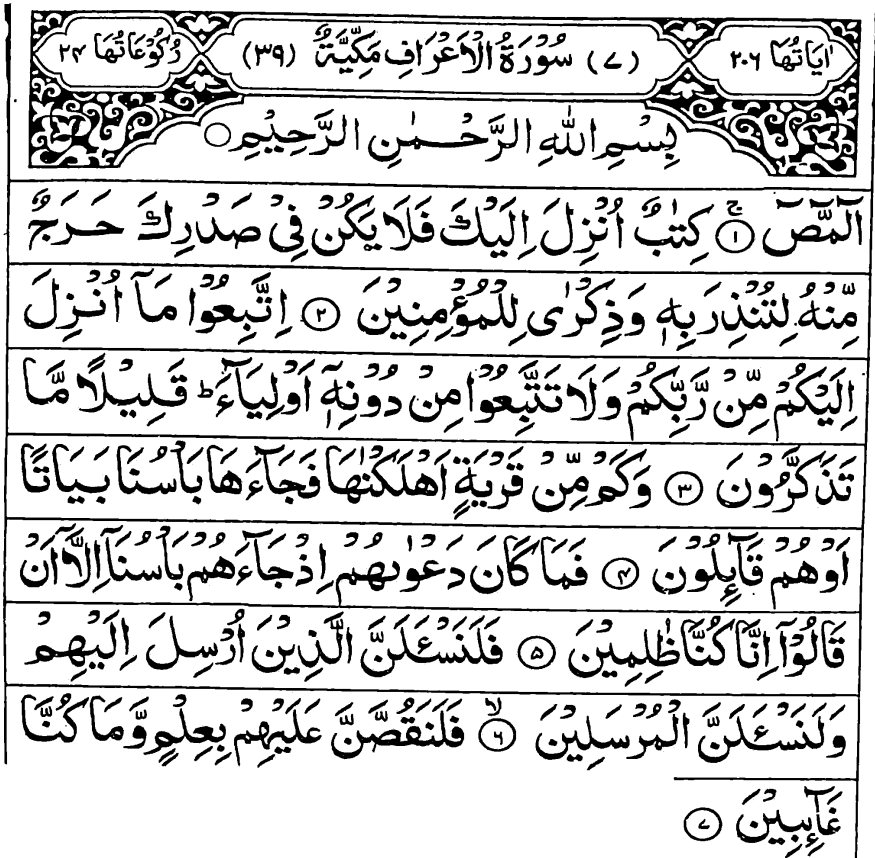 اٰيَاتُهَا ٢٠٦ (٧) سُوْرَةُ الْاَعْرَافِ مَكِّيَّةٌ (٣٩) رُكُوْعَاتُهَا ٢٤
بِسْمِ اللهِ الرَّحْمٰنِ الرَّحِيْمِ ○
الٓمّٓصٓ ۚ ﴿١﴾ كِتٰبٌ اُنْزِلَ اِلَيْكَ فَلَا يَكُنْ فِيْ صَدْرِكَ حَرَجٌ
مِّنْهُ لِتُنْذِرَ بِهٖ وَذِكْرٰى لِلْمُؤْمِنِيْنَ ﴿٢﴾ اِتَّبِعُوْا مَآ اُنْزِلَ
اِلَيْكُمْ مِّنْ رَّبِّكُمْ وَلَا تَتَّبِعُوْا مِنْ دُوْنِهٖٓ اَوْلِيَآءَ ؕ قَلِيْلًا مَّا
تَذَكَّرُوْنَ ﴿٣﴾ وَكَمْ مِّنْ قَرْيَةٍ اَهْلَكْنٰهَا فَجَآءَهَا بَاْسُنَا بَيَاتًا
اَوْ هُمْ قَآئِلُوْنَ ﴿٤﴾ فَمَا كَانَ دَعْوٰىهُمْ اِذْ جَآءَهُمْ بَاْسُنَآ اِلَّآ اَنْ
قَالُوْٓا اِنَّا كُنَّا ظٰلِمِيْنَ ﴿٥﴾ فَلَنَسْـَٔلَنَّ الَّذِيْنَ اُرْسِلَ اِلَيْهِمْ
وَلَنَسْـَٔلَنَّ الْمُرْسَلِيْنَ ۙ ﴿٦﴾ فَلَنَقُصَّنَّ عَلَيْهِمْ بِعِلْمٍ وَّمَا كُنَّا
غَآئِبِيْنَ ﴿٧﴾